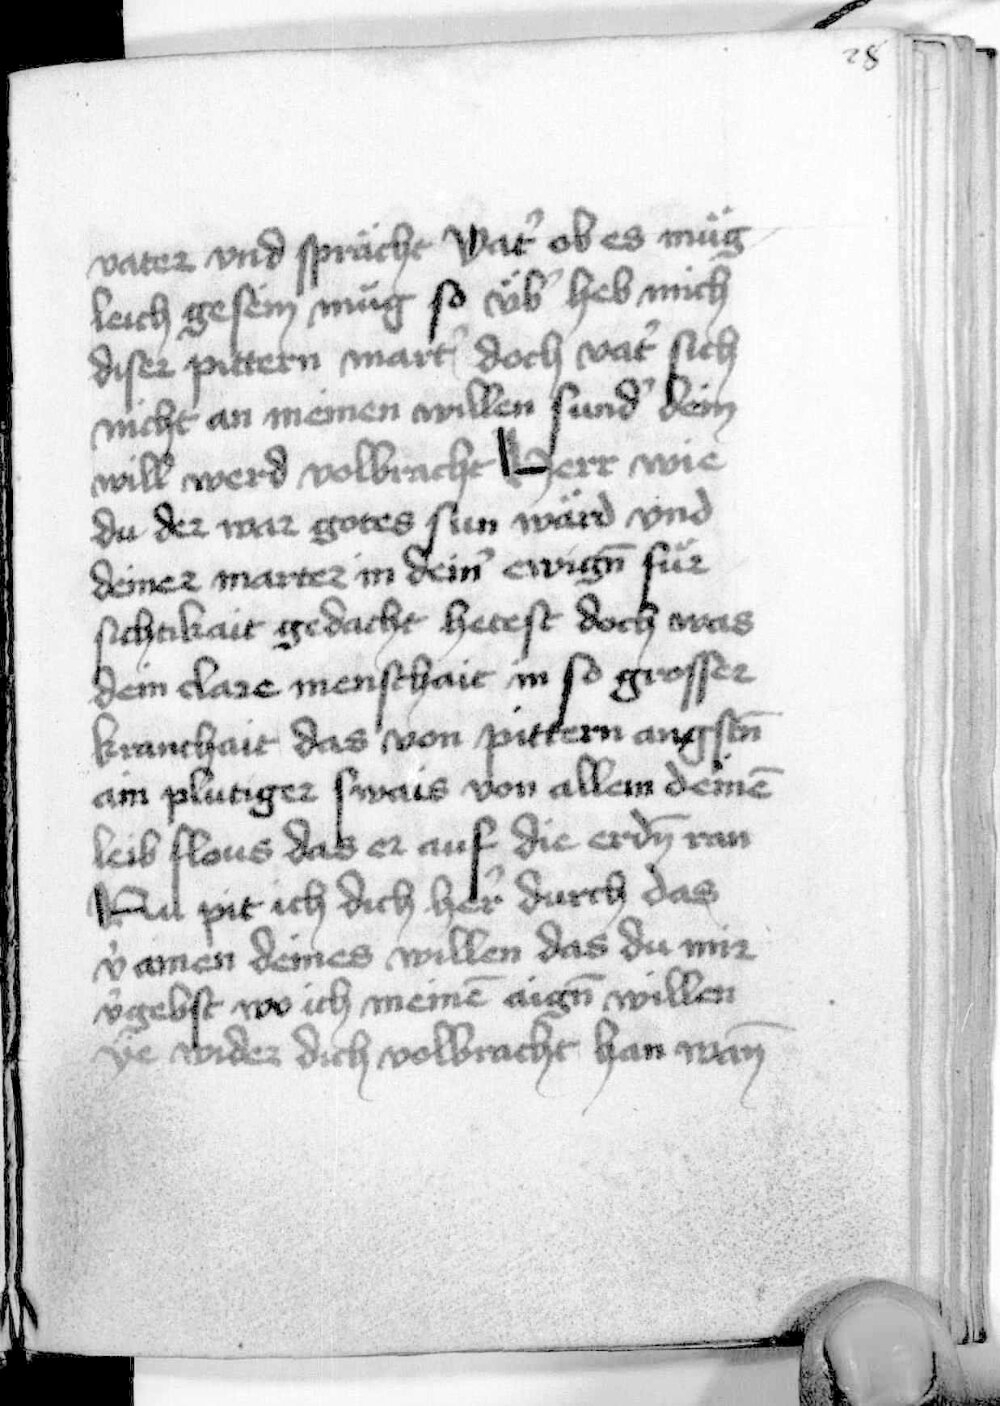 28
vater vnd sprächt Vat̉ ob es müg
leich gesein müg so v̈b̉ heb mich
diser pittern mart̉ doch vat̉ sich
nicht an meinen willen sund̉ dein
will werd volbracht Herr wie
du der war gotes sun wärd vnd
deiner marter in dein̉ ewign̄ für
sichtikait gedacht hetest doch was
dein clare menschait in so grosser
kranchait das von pittern angstn̄
ain plutiger swais von allem deinē
leib flous das er auf die erdn̄ ran
Nu pit ich dich her̉ durch das
v̉ainen deines willen das du mir
v̉gebst wo ich meinē aign̄ willen
ÿe wider dich volbracht han wan̄